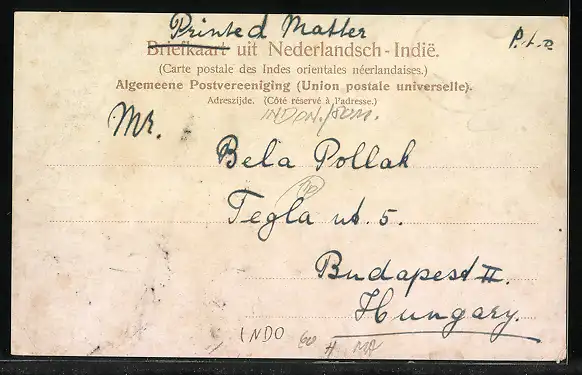 Printed Matter
Briefkaart uit Nederlandsch-Indië.
P.t.o
(Carte postale des Indes orientales néerlandaises.)
Algemeene Postvereeniging (Union postale universelle).
Adreszijde. (Côté réservé à l'adresse.)
INDON./SUM.
Mr.
Bela Pollak
10
Tegla ut 5.
Budapest II.
Hungary.
INDO